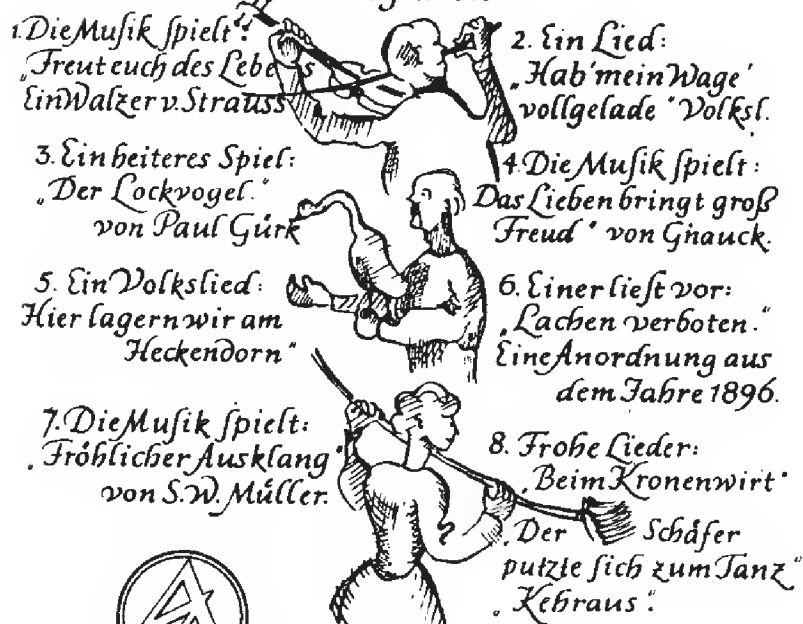 1. Die Muſik ſpielt:
„Freut euch des Lebens
Ein Walzer v. Strauss
2. Ein Lied:
„Hab' mein Wage'
vollgelade“ Volksl.
3. Ein heiteres Spiel:
„Der Lockvogel.“
von Paul Gürk
4. Die Muſik ſpielt:
Das Lieben bringt groß
Freud“ von Gnauck.
5. Ein Volkslied:
Hier lagern wir am
Heckendorn“
6. Einer lieſt vor:
„Lachen verboten.“
Eine Anordnung aus
dem Jahre 1896.
7. Die Muſik ſpielt:
„Fröhlicher Ausklang“
von S. W. Müller.
8. Frohe Lieder:
„Beim Kronenwirt“
„Der Schäfer
putzte ſich zum Tanz“
„Kehraus“.